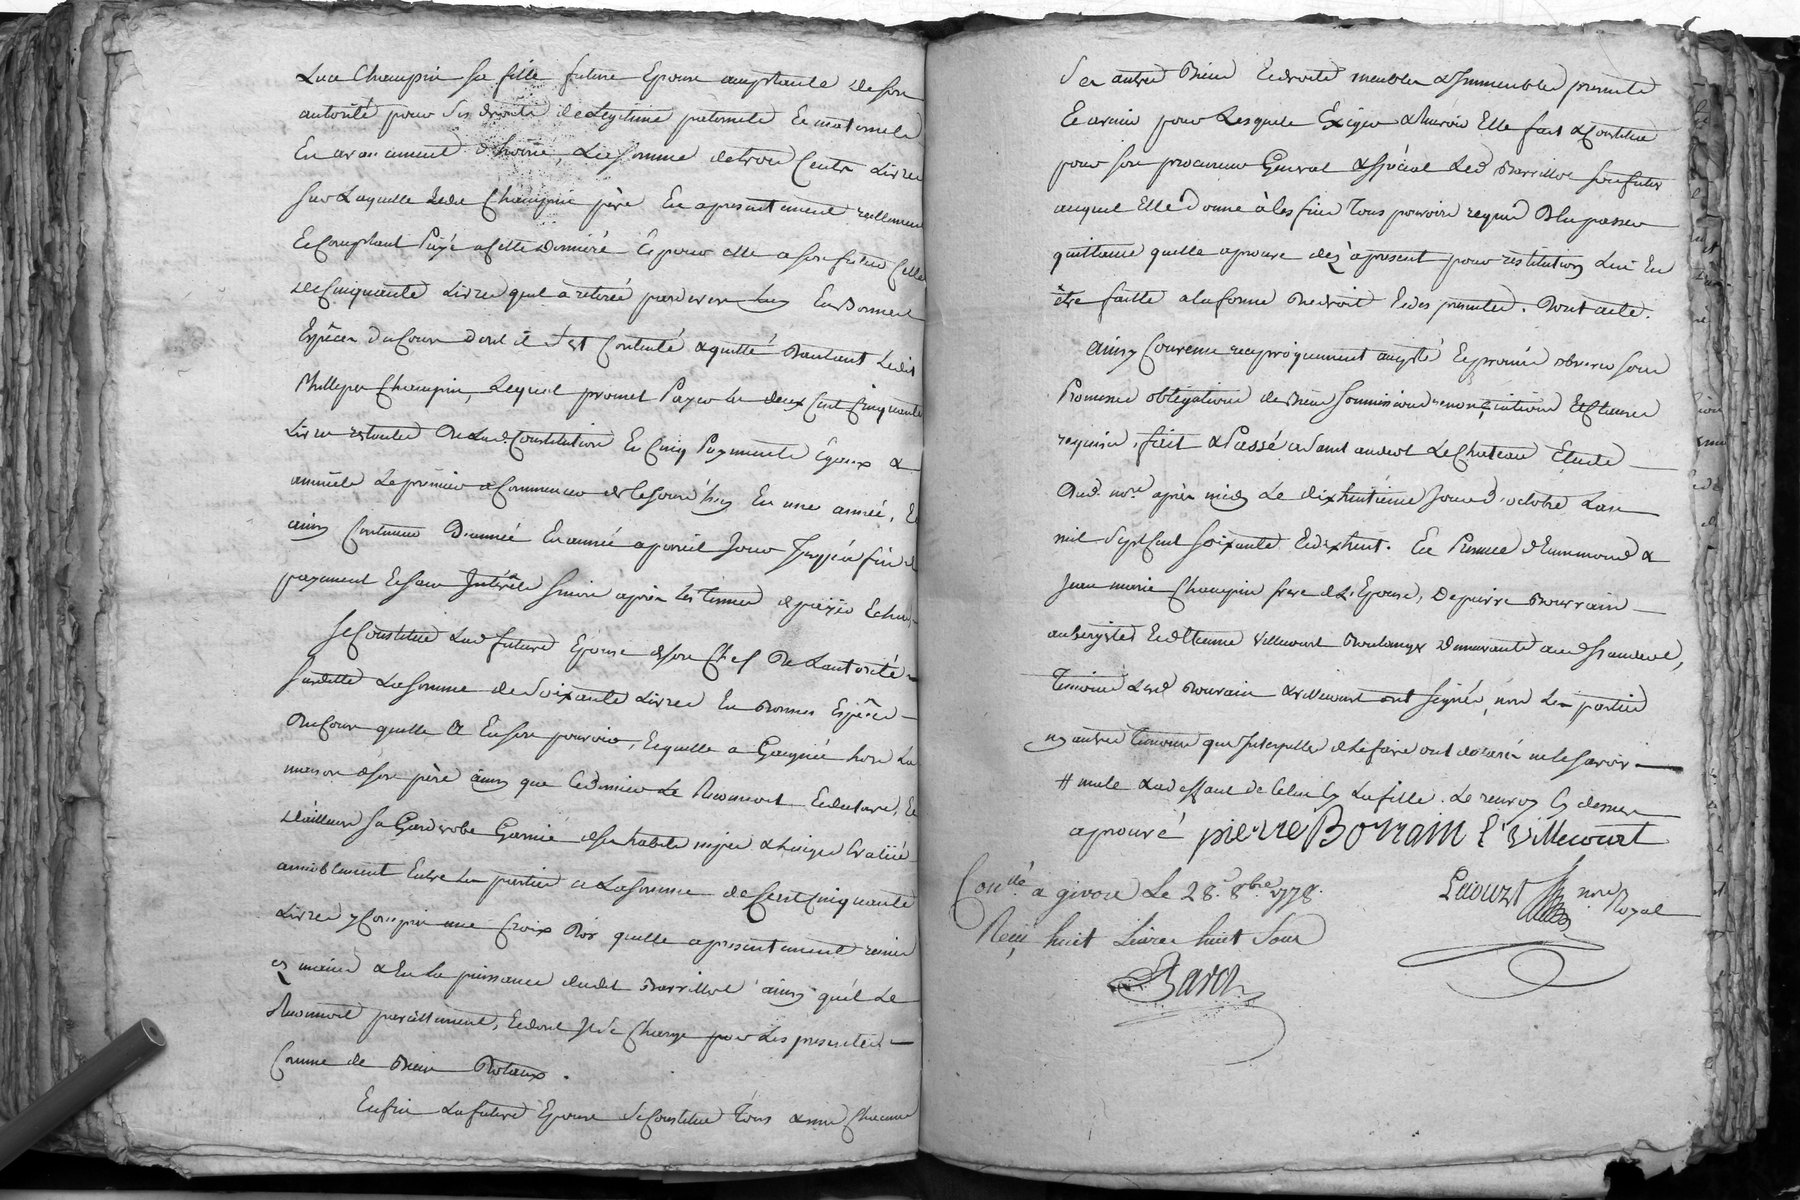 Luce Champin sa fille future Epouse acceptante de son
autorité pour ses droits de Légitime paternele et maternele
En avancement d'hoirie, La somme de trois Cents Livres
sur Laquelle Led. Champin père En a presentement réellement
Et Comptant Payé a cette dernière Et pour elle a son futur Celle
de Cinquante Livres quil a retirée pardevers Luy En Bonnes
Espèces du Cour dont il s'est Contenté & quitté d'autant Ledit
Phillippe Champin, Lequel promet Payer les deux Cent Cinquante
Livres restantes de Lad. Constitution En Cinq Payments Egaux &
annuels Le premier a Commencer de Cejourd'huy En une année, Et
ainsy Continuer D'année En année a pareil Jour Jusques a fin de
payement Et sans Intérêts Sinon après les termes
Se Constitue Lad. future Epouse de son Chef De Lautorité
susditte La somme de Soixante Livres En Bonnes Espèces
Du Cour quelle a En son pouvoir, Et quelle a Gagnée hors La
maison de son père ainsy que Ce dernier Le Reconnoit Et declare, Et
d'ailleurs sa Garderobe Garnie de ses habits nipes & Linges Evalüé
amiablement Entre Les parties a La somme de Cent Cinquante
Livres y Compris une Croix D'or quelle a presentement remis
ez mains & En La puissance dudit Barrillot ainsy quil Le
Reconnoit pareillement, Et dont Il se Charge pour Les presentes
Comme de Biens Dotaux.
Enfin La future Epouse se Constitue Tous & uns Chacuns
Ses autres Biens Et droits meubles & Immeubles presents
Et avenir pour Lesquels Exiger & havoir Elle fait & Constitue
pour son procureur General & spécial Led. Barrillot son futur
auquel Elle donne à les fins Tous pouvoirs requis D'En passer
quittance quelle aprouve dez à present pour restitution Lui En
être faitte a la forme De droit Et des presentes. Dont acte.
Ainsy Convenu reciproquement accepté Et promis observer sous
Promesses obligations de Biens Soumissions renonciations Et Clauses
requises, fait & Passé a Saint andeol Le Chateau Etude
Dud. nore. après midy Le dixhuitième Jour d'octobre L'an
mil Sept Cent soixante Et dixhuit. En Presence d'Ennemond &
Jean marie Champin frere de L'Epouse, De pierre Bourrain
aubergiste Et d'Etienne Villecourt Boulanger Demeurants aud. St. andeol,
Temoins Lesd. Bourrain & Villecourt ont signés, non Les parties
ny autres temoins que Interpellés de Le faire ont declaré ne le savoir
# male & a deffaut de Celui Cy La fille. Le renvoy Cy dessus
aprouvé pierre Borrain E Villecourt
Conllé. a givors Le 28. 8bre 1778.
Reçu huit Livres huit Sous
nore Royal